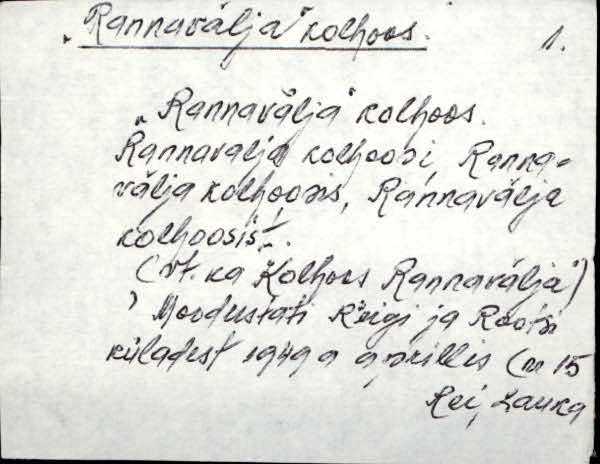 „Rannavälja" kolhoos. 1.
„Rannavälja" kolhoos.
Rannavälja kolhoosi, Ranna-
välja kolhoosis, Rannavälja
kolhoosist.
(vt. ka Kolhoos Rannavälja")
Moodustati Reigi ja Rootsi
küladest 1949 a aprillis (u 15
Rei, Lauka